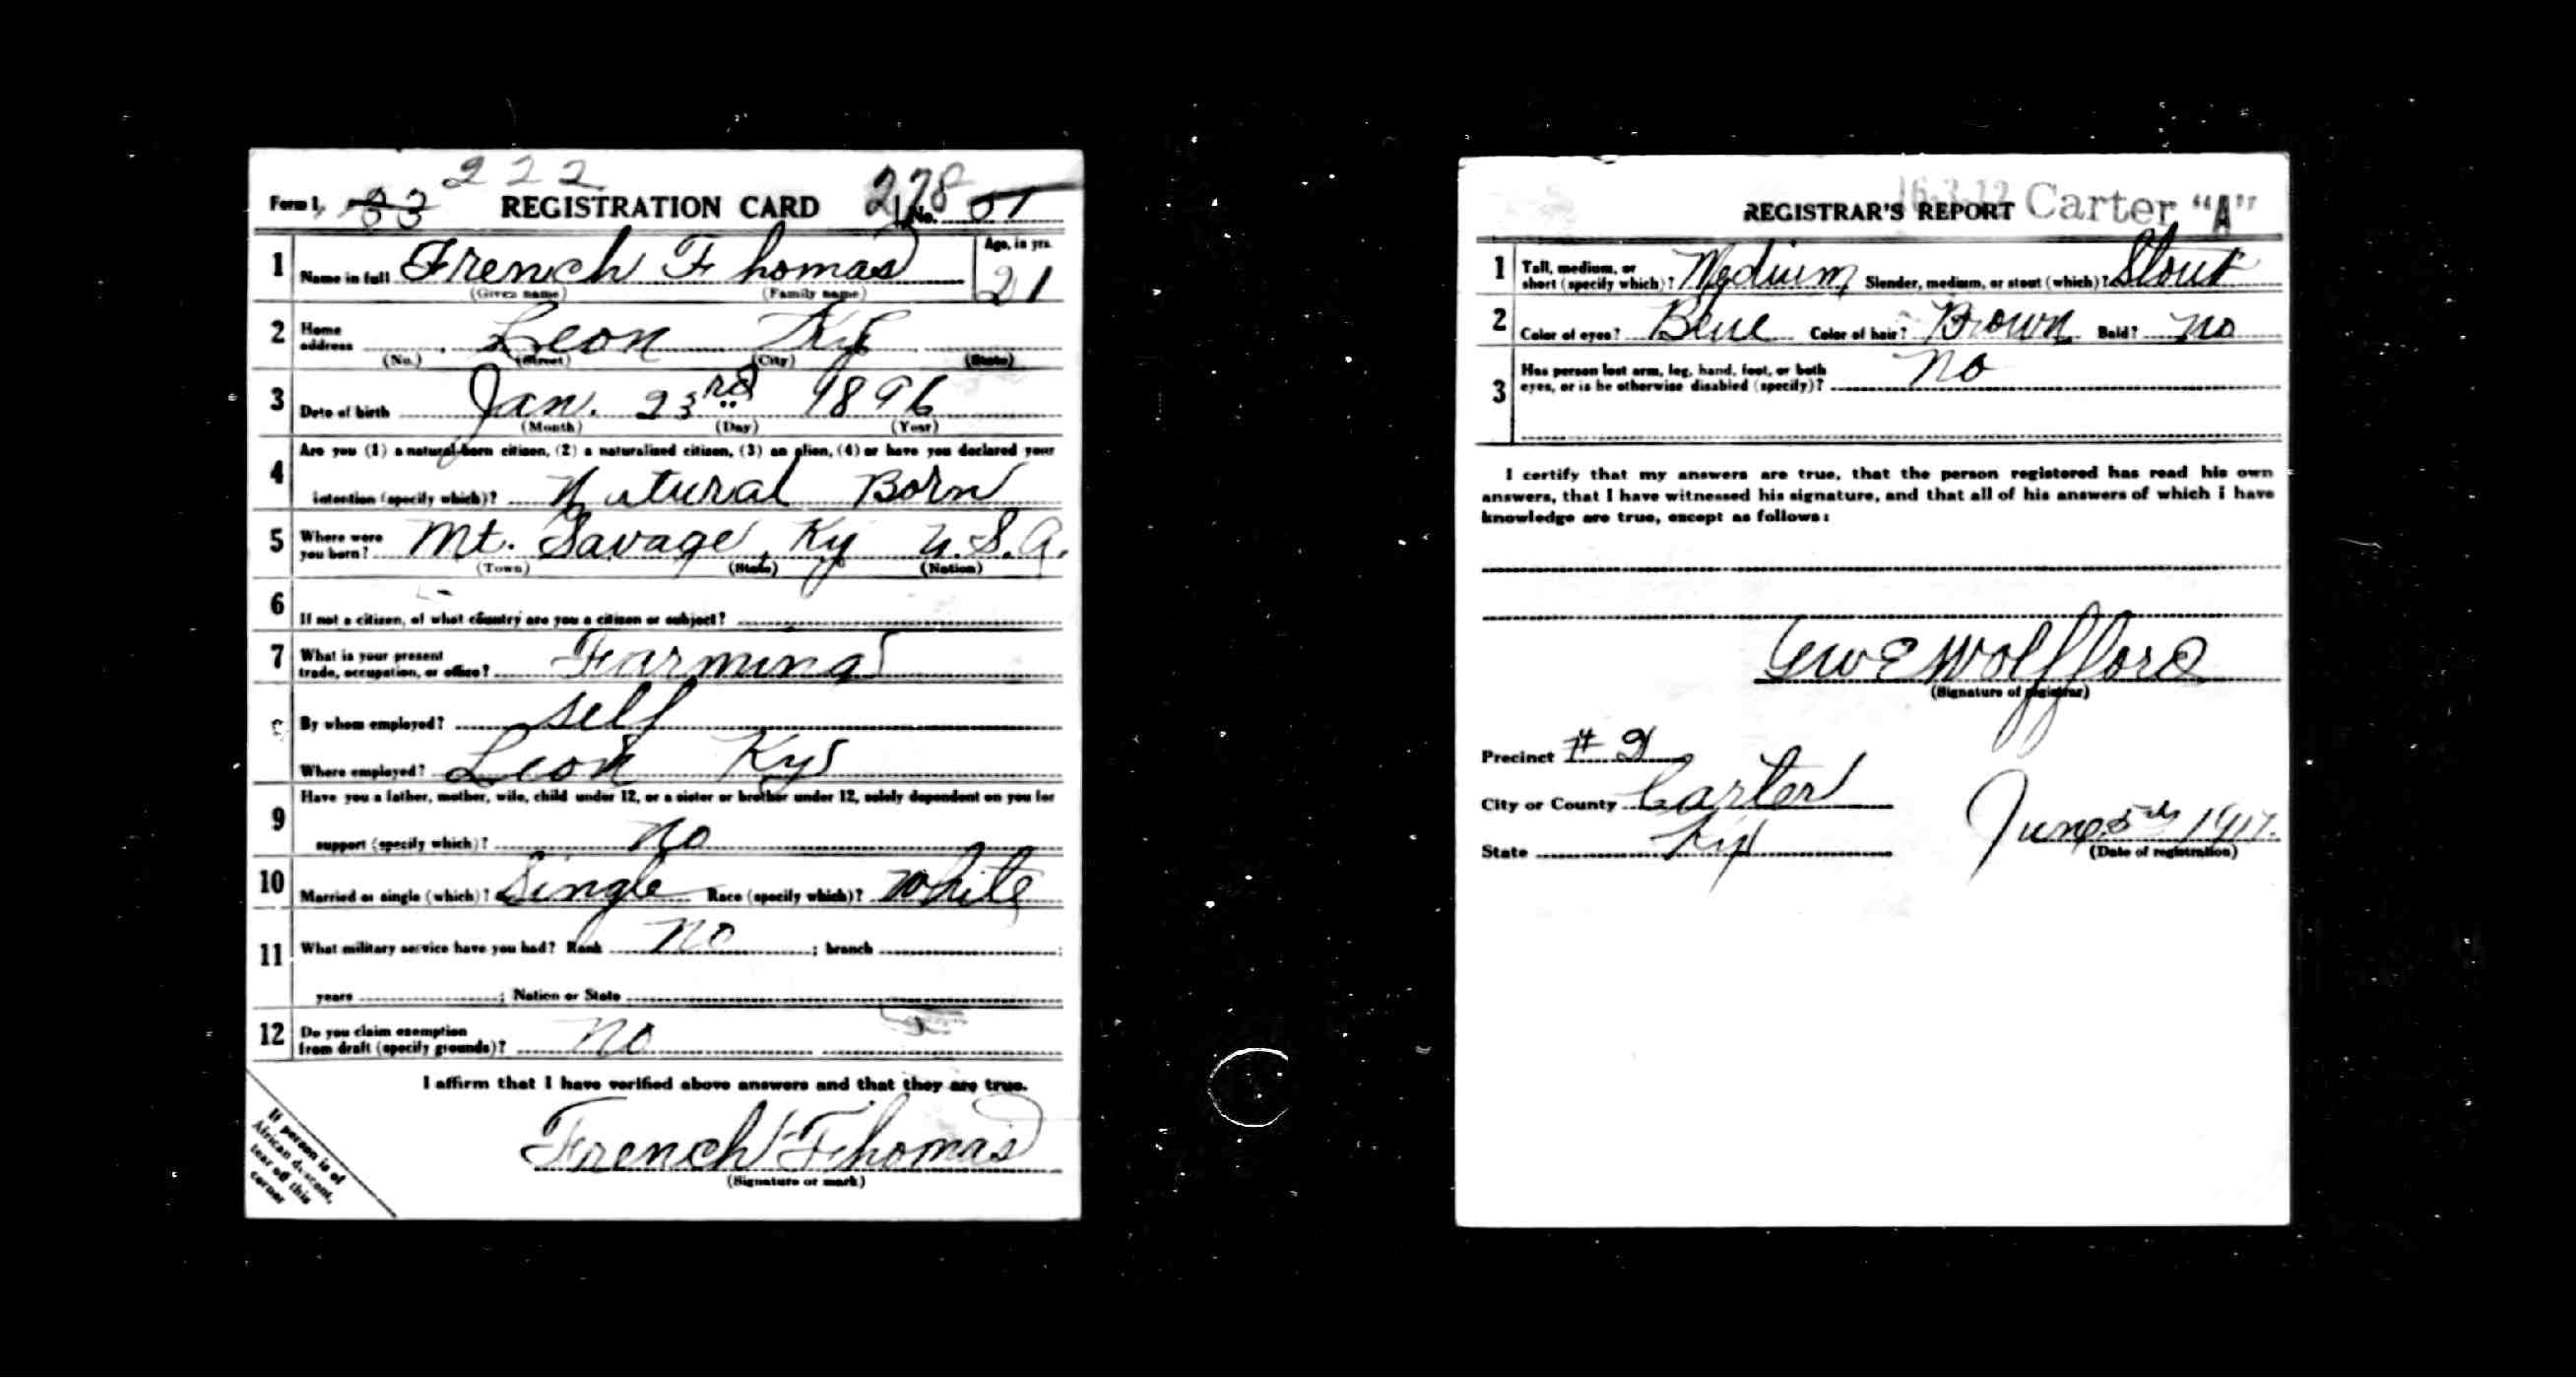 222
Form 1, 33 REGISTRATION CARD 278 No. 51
1 Name in full French Thomas Age, in yrs. 21
(Given name) (Family name)
2 Home address Leon Ky
(No.) (Street) (City) (State)
3 Date of birth Jan. 23rd 1896
(Month) (Day) (Year)
4 Are you (1) a natural-born citizen, (2) a naturalized citizen, (3) an alien, (4) or have you declared your
intention (specify which)? Natural Born
5 Where were you born? Mt. Savage, Ky U.S.A.
(Town) (State) (Nation)
6 If not a citizen, of what country are you a citizen or subject?
7 What is your present
trade, occupation, or office? Farming
By whom employed? Self
Where employed? Leon Ky
9 Have you a father, mother, wife, child under 12, or a sister or brother under 12, solely dependent on you for
support (specify which)? No
10 Married or single (which)? Single Race (specify which)? White
11 What military service have you had? Rank No ; branch ;
years ; Nation or State
12 Do you claim exemption
from draft (specify grounds)? No
I affirm that I have verified above answers and that they are true.
French Thomas
(Signature or mark)
If person is of
African descent,
tear off this
corner
REGISTRAR'S REPORT Carter "A"
1 Tall, medium, or
short (specify which)? Medium Slender, medium, or stout (which)? Stout
2 Color of eyes? Blue Color of hair? Brown Bald? No
3 Has person lost arm, leg, hand, foot, or both
eyes, or is he otherwise disabled (specify)? No
I certify that my answers are true, that the person registered has read his own
answers, that I have witnessed his signature, and that all of his answers of which I have
knowledge are true, except as follows:
GWE Wolfford
(Signature of registrar)
Precinct # 2
City or County Carter
State Ky
June 5th 1917.
(Date of registration)